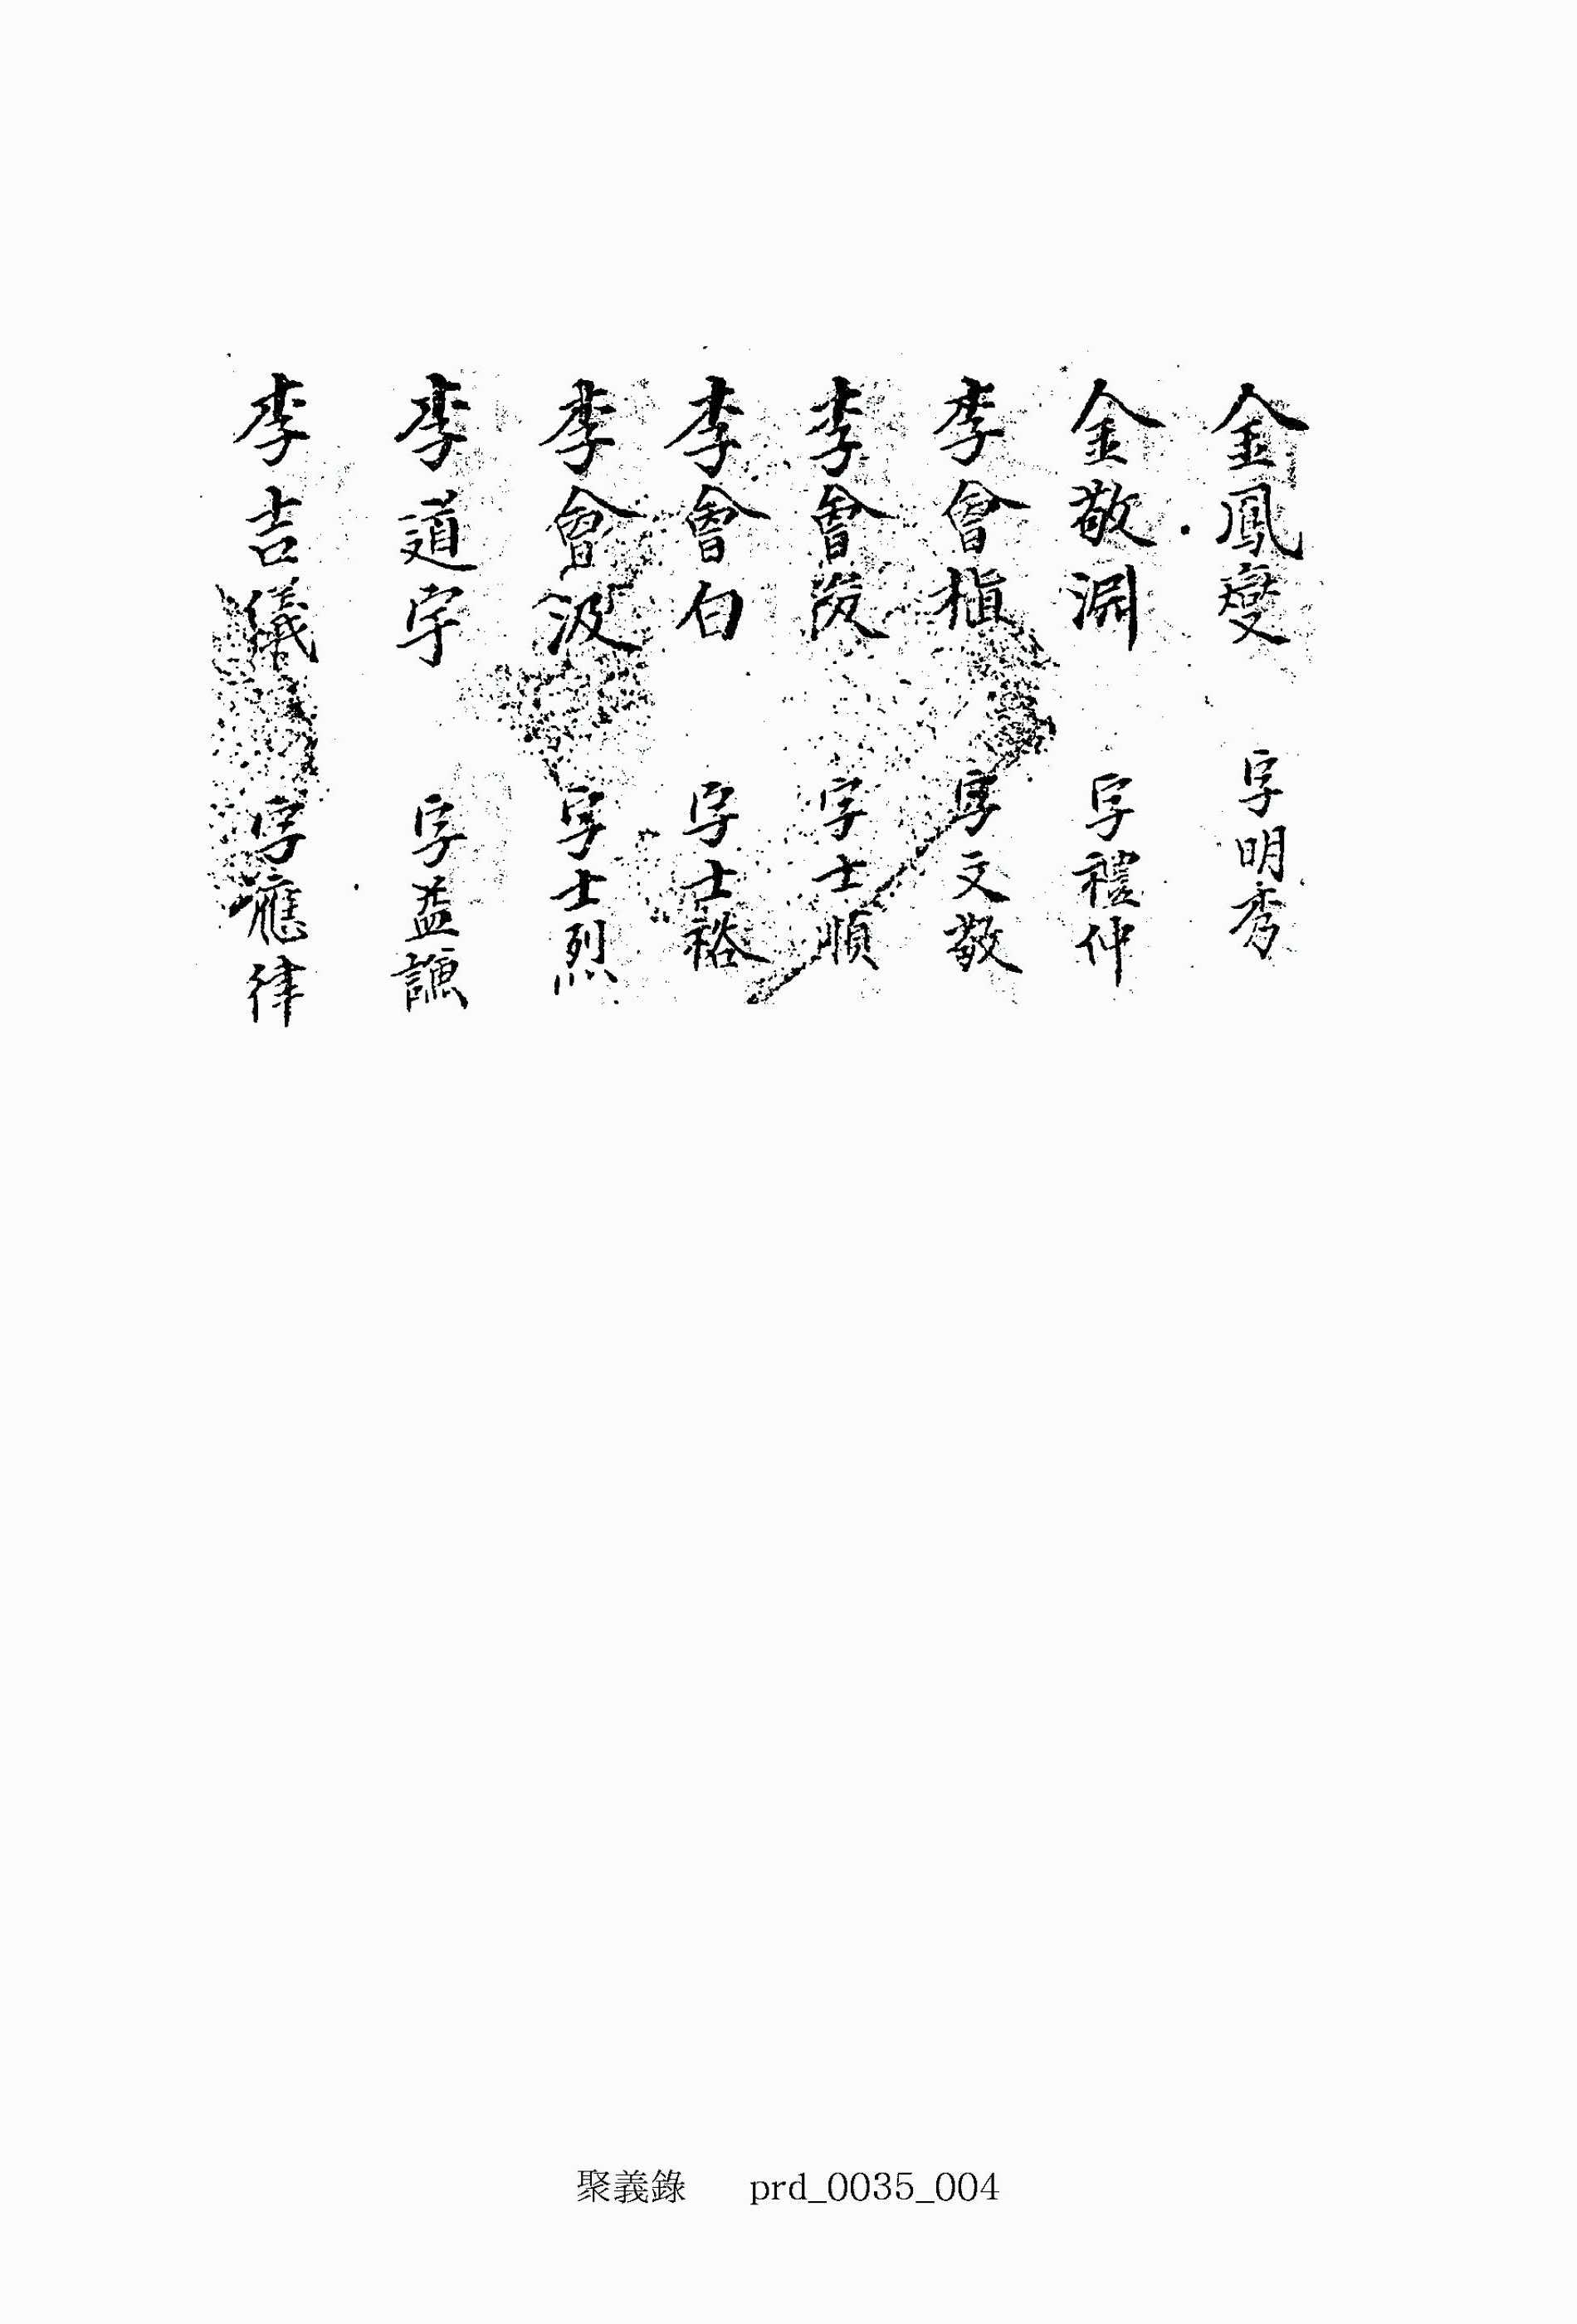 金鳳燮 字明秀
金敬淵 字禮仲
李會稹 字文敬
李會 字士順
李會白 字士裕
李會汲 字士烈
李道宇 字益謙
李吉儀 字應律
聚義錄 prd_0035_004